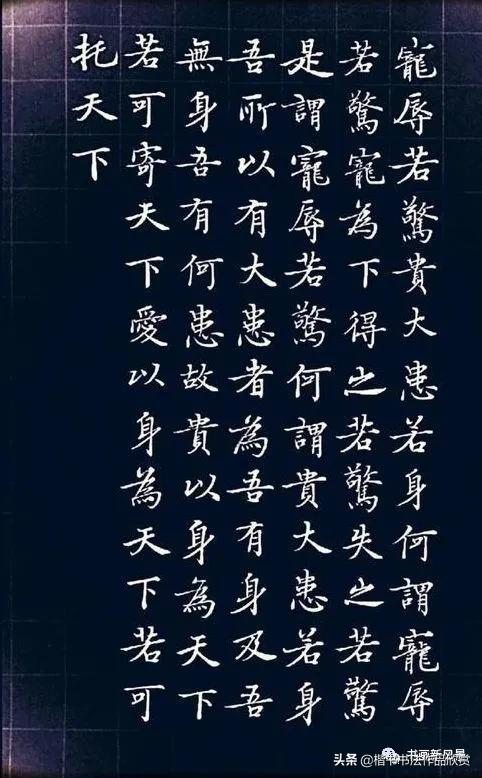 寵辱若驚貴大患若身何謂寵辱
若驚寵為下得之若驚失之若驚
是謂寵辱若驚何謂貴大患若身
吾所以有大患者為吾有身及吾
無身吾有何患故貴以身為天下
若可寄天下愛以身為天下若可
托天下
书画新风景
头条@楷书书法作品欣赏